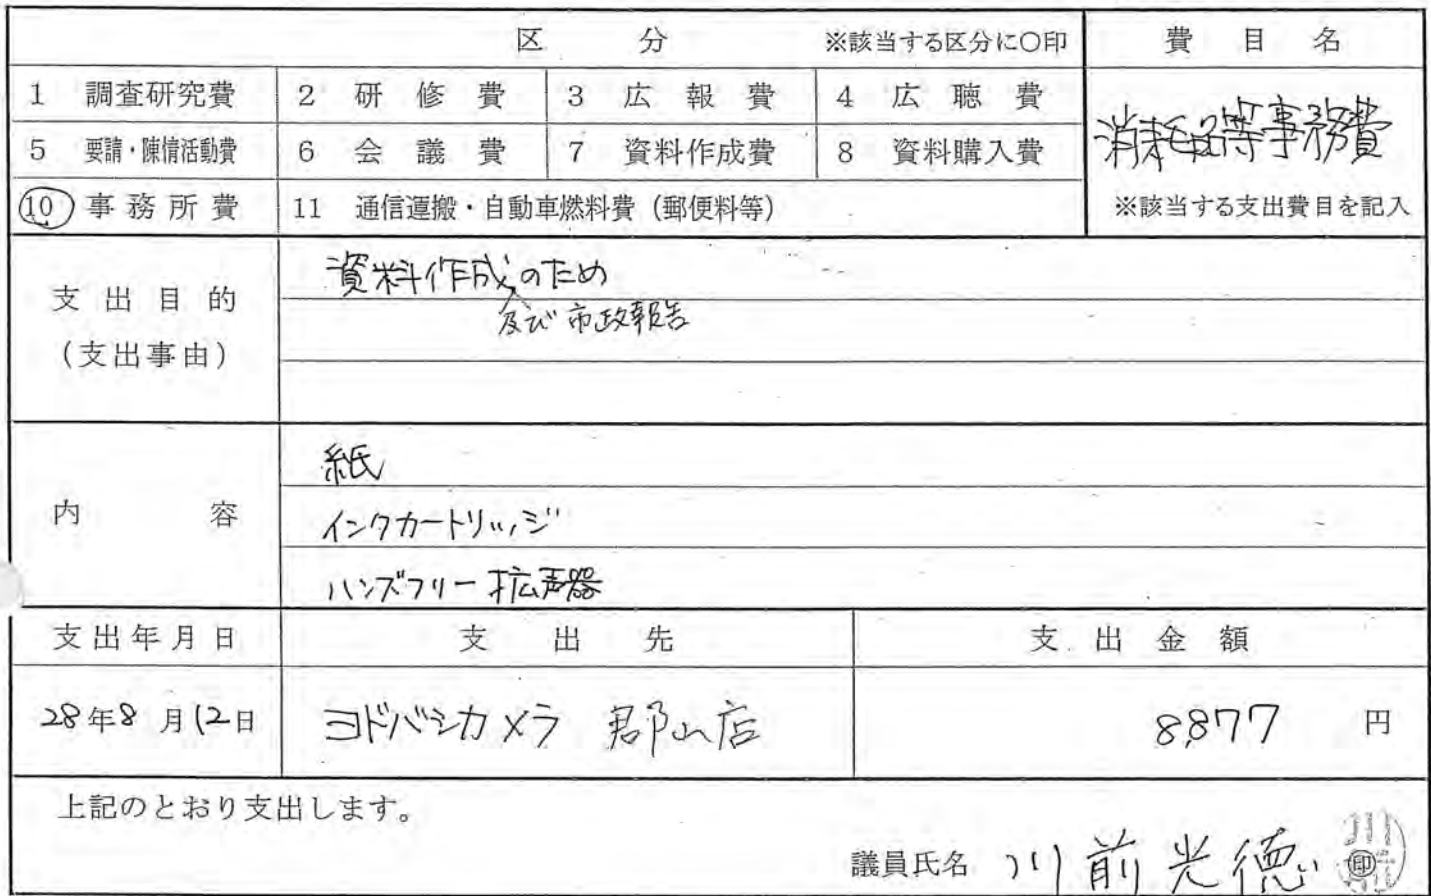 区 分 ※該当する区分に〇印 費目名
1 調査研究費 2 研修費 3 広報費 4 広聴費
消耗品等事務費
5 要請・陳情活動費 6 会議費 7 資料作成費 8 資料購入費
10 事務所費 11 通信運搬・自動車燃料費(郵便料等) ※該当する支出費目を記入
支出目的
(支出事由)
資料作成のため
及び市政報告
内容
紙
インクカートリッジ
ハンズフリー拡声器
支出年月日 支出先 支出金額
28年8月12日 ヨドバシカメラ 郡山店 8,877 円
上記のとおり支出します。
議員氏名 川前光徳 印